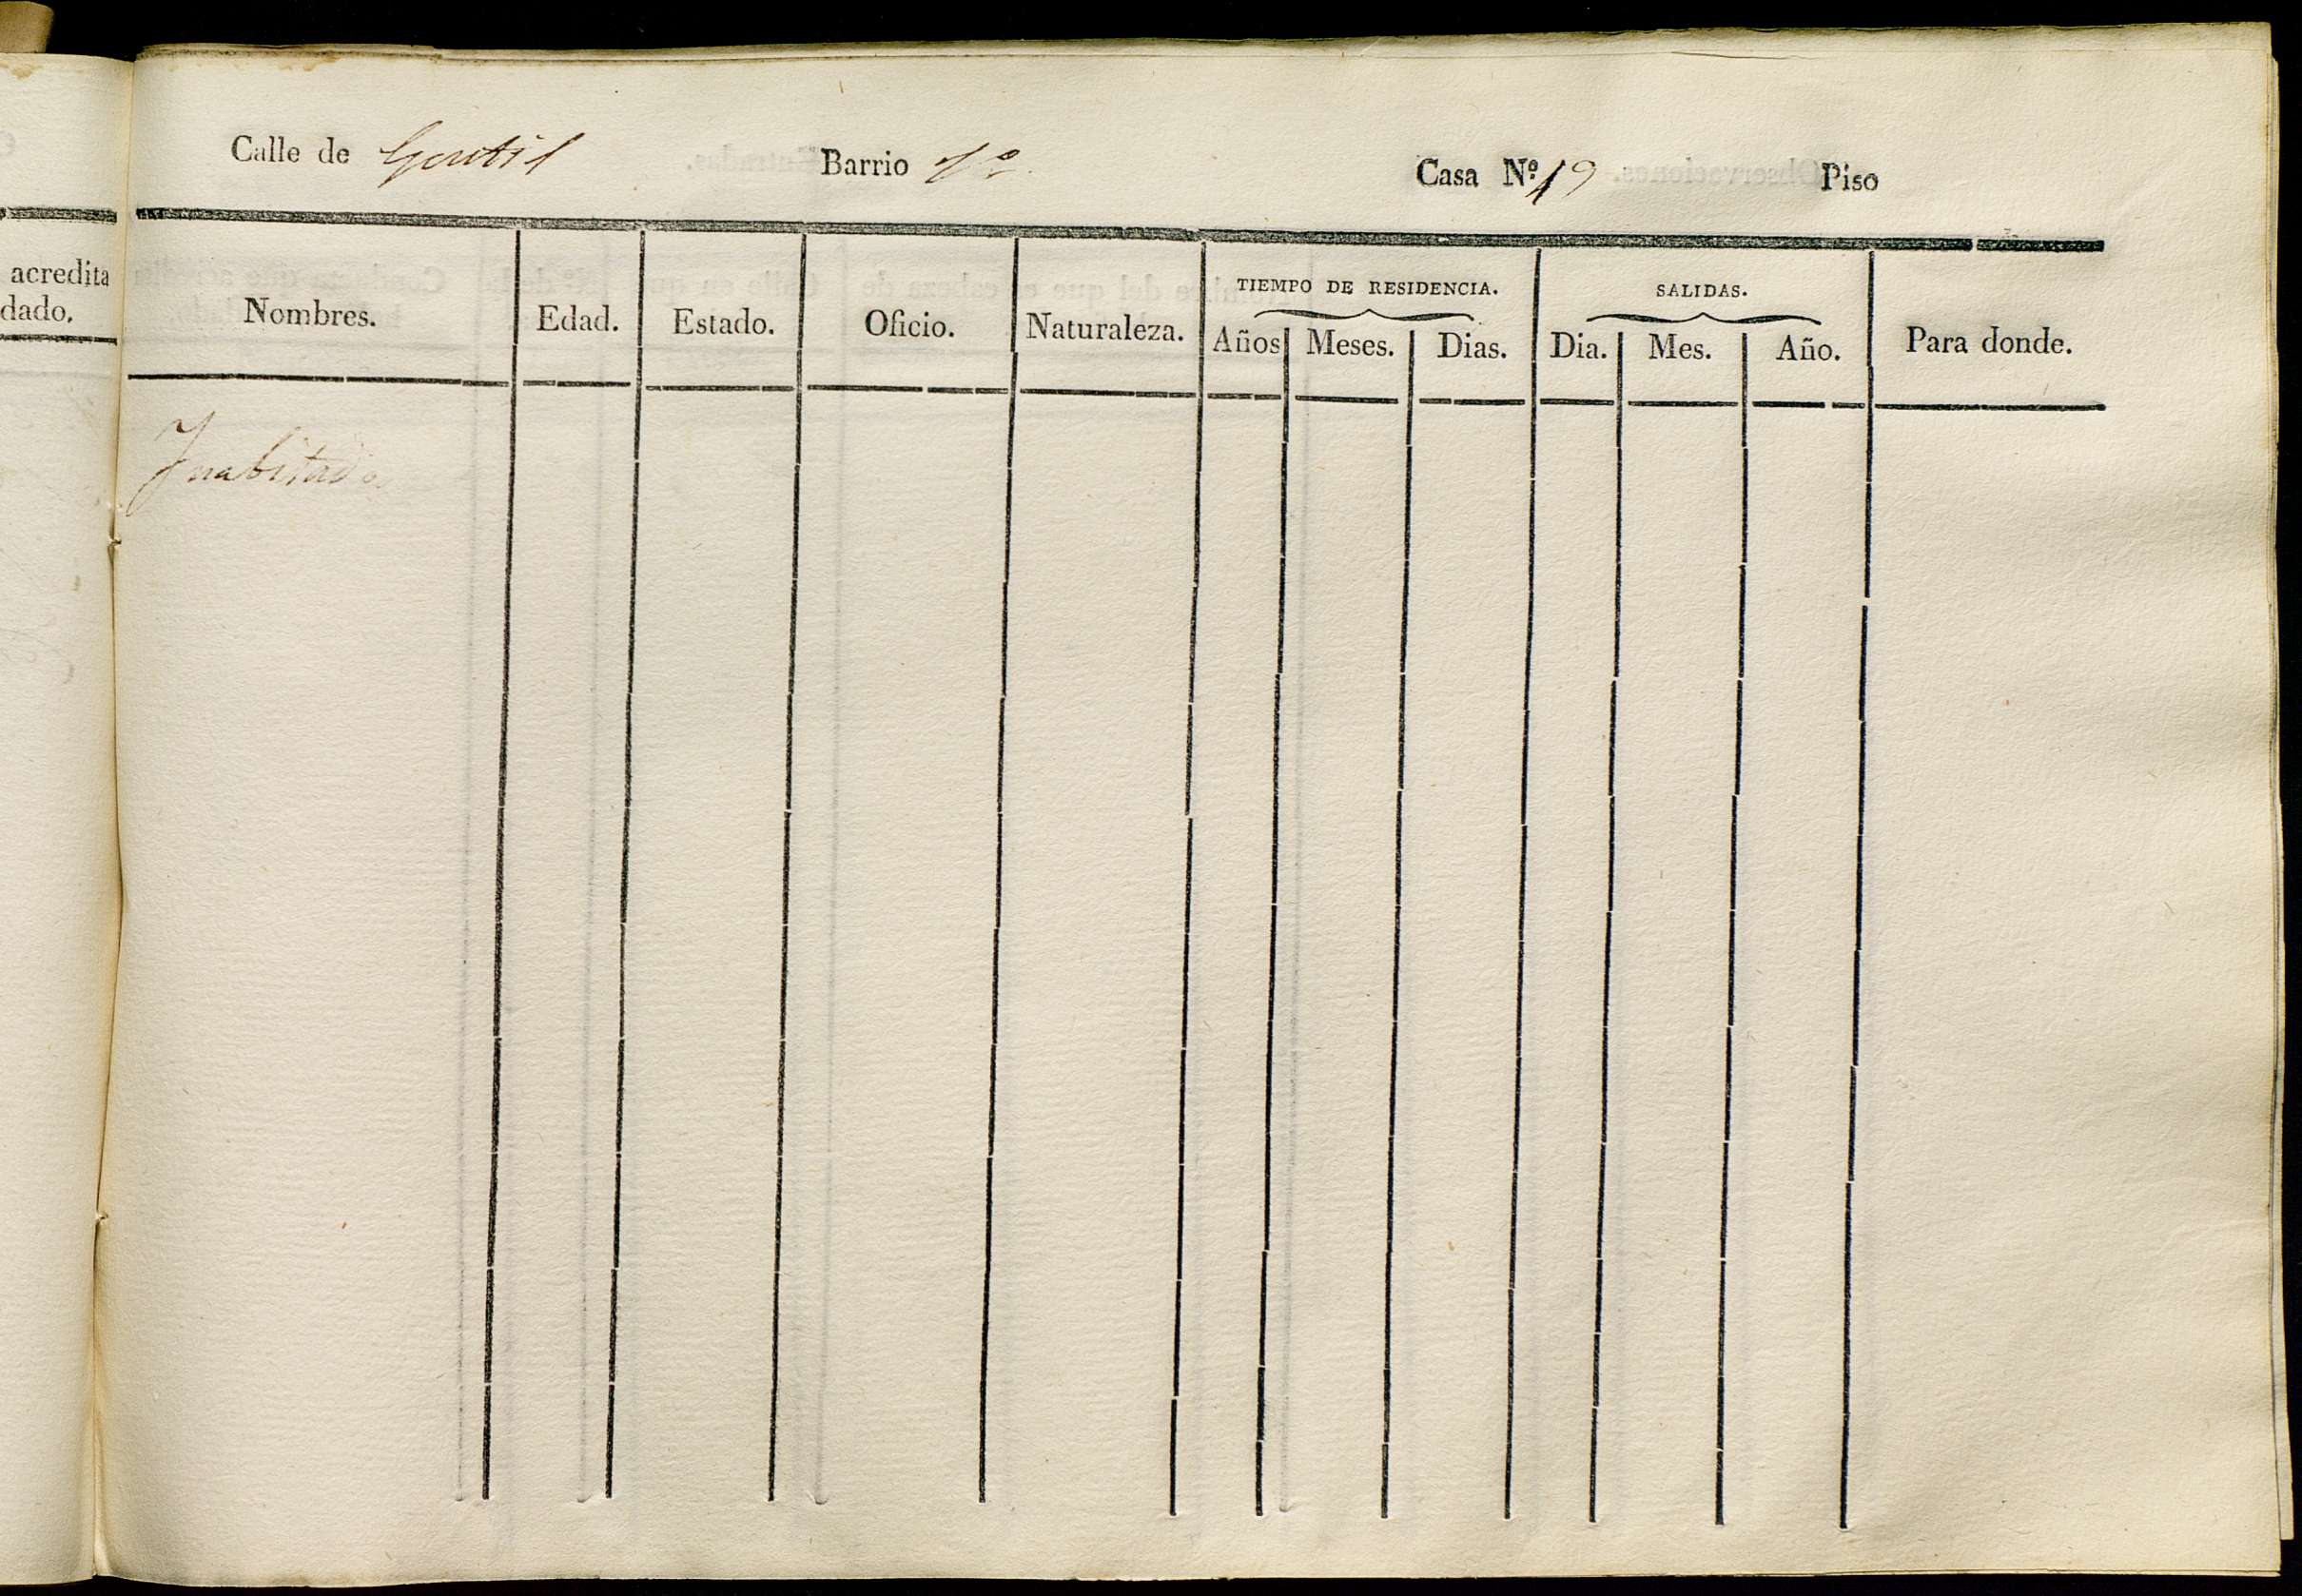 Calle de Gentil Barrio 1º Casa Nº 19 Piso
acredita
dado.
TIEMPO DE RESIDENCIA. SALIDAS.
Nombres. Edad. Estado. Oficio. Naturaleza. Años Meses. Dias. Dia. Mes. Año. Para donde.
Inabitada